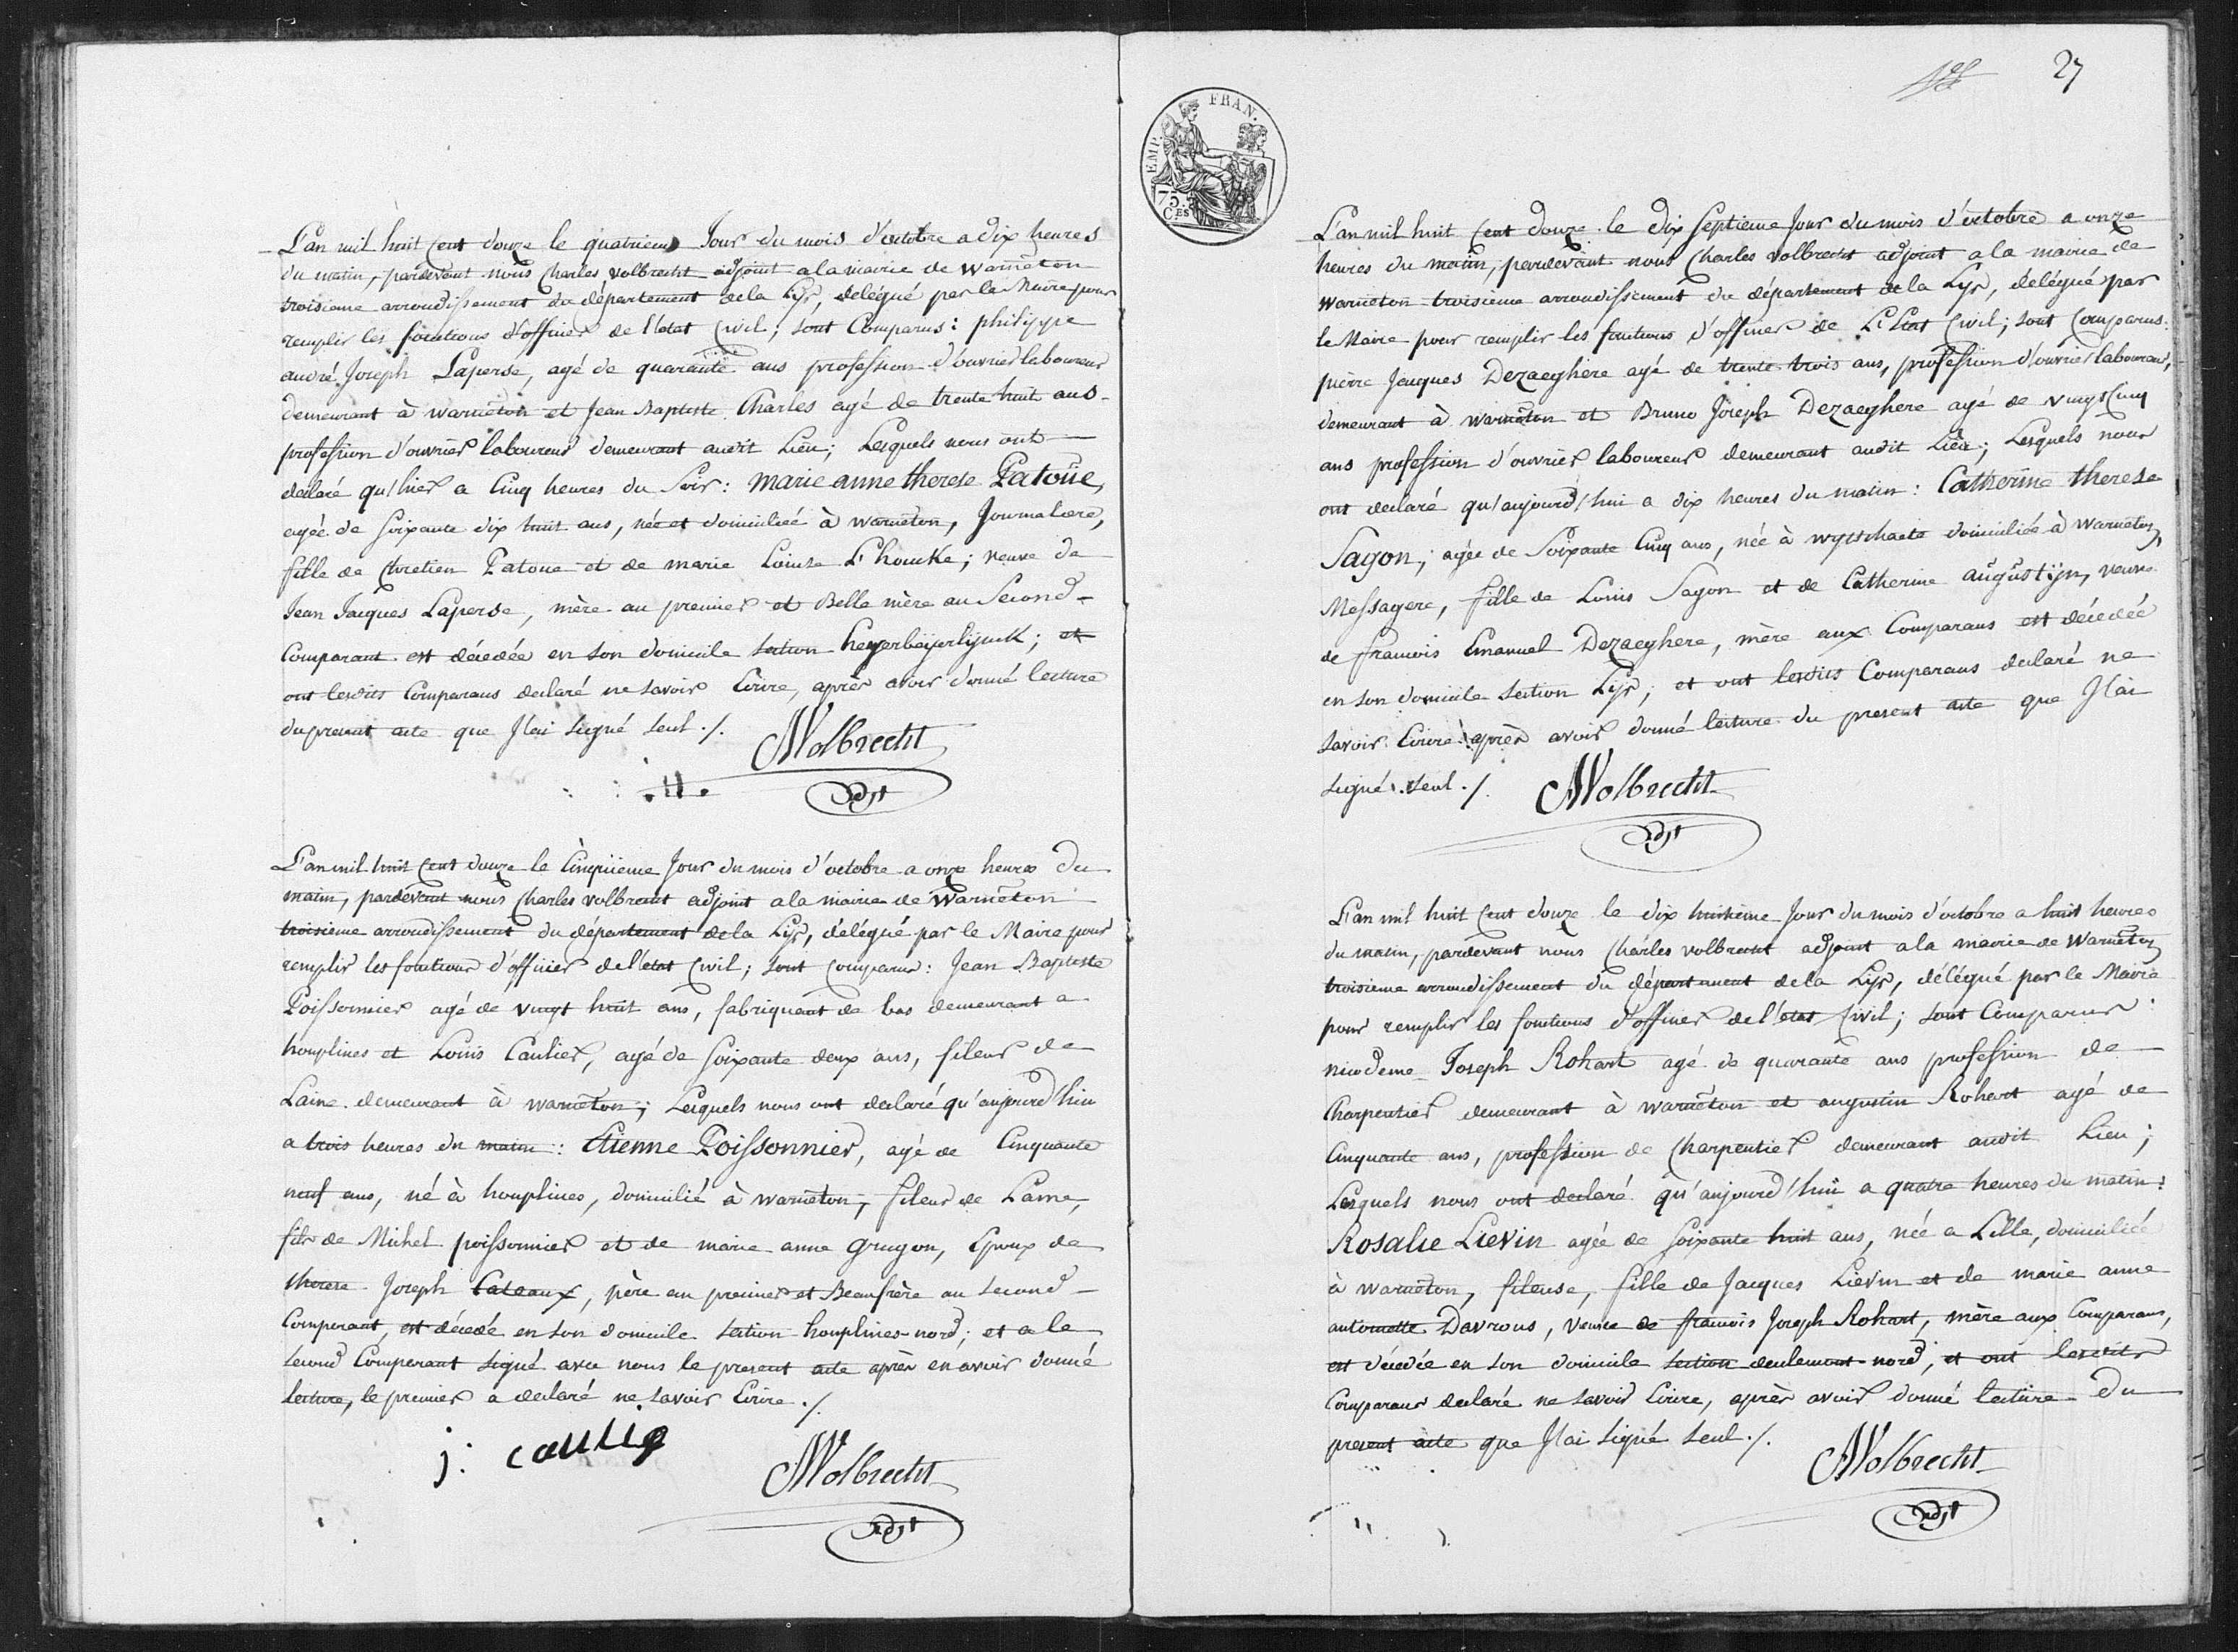 L'an mil huit Cent douze le quatrieme Jour du mois d'octobre a dix heures
du matin, pardevant nous Charles volbrecht adjoint a la mairie de warneton
troisieme arrondissement du département de la Lÿs, delégué par le Maire pour
remplir les fonctions d'officier de l'état Civil; sont Comparus: philippe
andré Joseph Laperse, agé de quarante ans profession d'ouvrier laboureur
demeurant à warneton et Jean Baptiste Charles agé de trente huit ans
profession d'ouvrier laboureur demeurant audit Lieu; Lesquels nous ont
declaré qu'hier a Cinq heures du Soir: marie anne therese Patoüe,
agée de soixante dix huit ans, née et domiciliée à warneton, Journaliere,
fille de Chretien Patoue et de marie Louise L'houcke; veuve de
Jean Jacques Laperse, mère au premier et Belle mère au Second
Comparant est décedée en son domicile section ; et
ont lesdits Comparans declaré ne savoir Ecrire, après avoir donné lecture
du present acte que J'lai signé seul ./.
Volbrecht
adjt
L'an mil huit Cent douze le Cinquieme Jour du mois d'octobre a onze heures du
matin, pardevant nous Charles volbrecht adjoint a la mairie de Warneton
troisieme arrondissement du département de la Lÿs, délégué par le Maire pour
remplir les fonctions d'officier de l'état Civil; sont Comparus: Jean Baptiste
Poissonnier agé de vingt huit ans, fabriquant de bas demeurant a
houplines et Louis Caulier, agé de soixante deux ans, fileur de
Laine demeurant à warneton; Lesquels nous ont declaré qu'aujourd'hui
a trois heures du matin: Etienne Poissonnier, agé de Cinquante
neuf ans, né à houplines, domicilié à warneton, fileur de Laine,
fils de Michel poissonnier et de marie anne grugon, Epoux de
therese Joseph Cateaux, père au premier et Beaufrère au second
Comparant, est décedé en son domicile section houplines-nord; et a le
second Comparant signé avec nous le present acte après en avoir donné
lecture, le premier a declaré ne savoir Ecrire ./.
Volbrecht
adjt
27
EMP. FRAN.
75. C.ES
L'an mil huit Cent douze le dix septieme Jour du mois d'octobre a onze
heures du matin, pardevant nous Charles volbrecht adjoint a la mairie de
warneton troisieme arrondissement du département de la Lÿs, delégué par
le Maire pour remplir les fonctions d'officier de L'Etat Civil; sont Comparus:
pièrre Jacques Dezaeghere agé de trente trois ans, profession d'ouvrier laboureur,
demeurant à warneton et Bruno Joseph Dezaeghere agé de vingt Cinq
ans profession d'ouvrier laboureur demeurant audit Lieu; Lesquels nous
ont declaré qu'aujourd'hui a dix heures du matin: Catherine therese
Sagon, agée de Soixante Cinq ans, née à wytschaete domiciliée à warneton,
Messagere, fille de Louis Sagon et de Catherine augustÿn, veuve
de francois Emanuel Dezaeghere, mère aux Comparans est décedée
en son domicile section Lÿs; et ont lesdits Comparans declaré ne
savoir Ecrire après avoir donné lecture du present acte que J'lai
signé seul ./.
Volbrecht
adjt
L'an mil huit Cent douze le dix huitieme Jour du mois d'octobre a huit heures
du matin, pardevant nous Charles volbrecht adjoint a la mairie de Warneton
troisieme arrondissement du département de la Lÿs, délégué par le Maire
pour remplir les fonctions d'officier de l'état Civil; sont Comparus:
nicodeme Joseph Rohart agé de quarante ans profession de
Charpentier demeurant à warneton et augustin Rohart agé de
Cinquante ans, profession de Charpentier demeurant audit Lieu;
Lesquels nous ont declaré qu'aujourd'hui a quatre heures du matin:
Rosalie Lievin agée de soixante huit ans, née a Lille, domiciliée
à warneton, fileuse, fille de Jacques Lievin et de marie anne
antoinette Davrous, veuve de francois Joseph Rohart, mère aux Comparans,
est décedée en son domicile section deulemont-nord; et ont lesdits
Comparans declaré ne savoir Ecrire, après avoir donné lecture du
present acte que J'lai signé seul ./.
Volbrecht
adjt